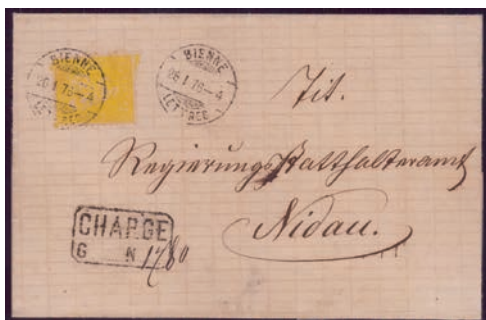 BIENNE
26 I 76 – 4
LETTRES
BIENNE
26 I 76 – 4
LETTRES
Tit.
Regierungsstatthalteramt
Nidau.
CHARGE
G N 1780